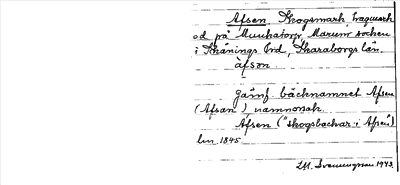 Afsen Skogsmark, hagmark
od på Munkatorp, Marums socken
i Skånings hd, Skaraborgs län.
àfson
Jämf. bäcknamnet Afsen
(Afsan), namnorsak.
Afsen ("skogsbackar i Afsen")
lm 1845
1943